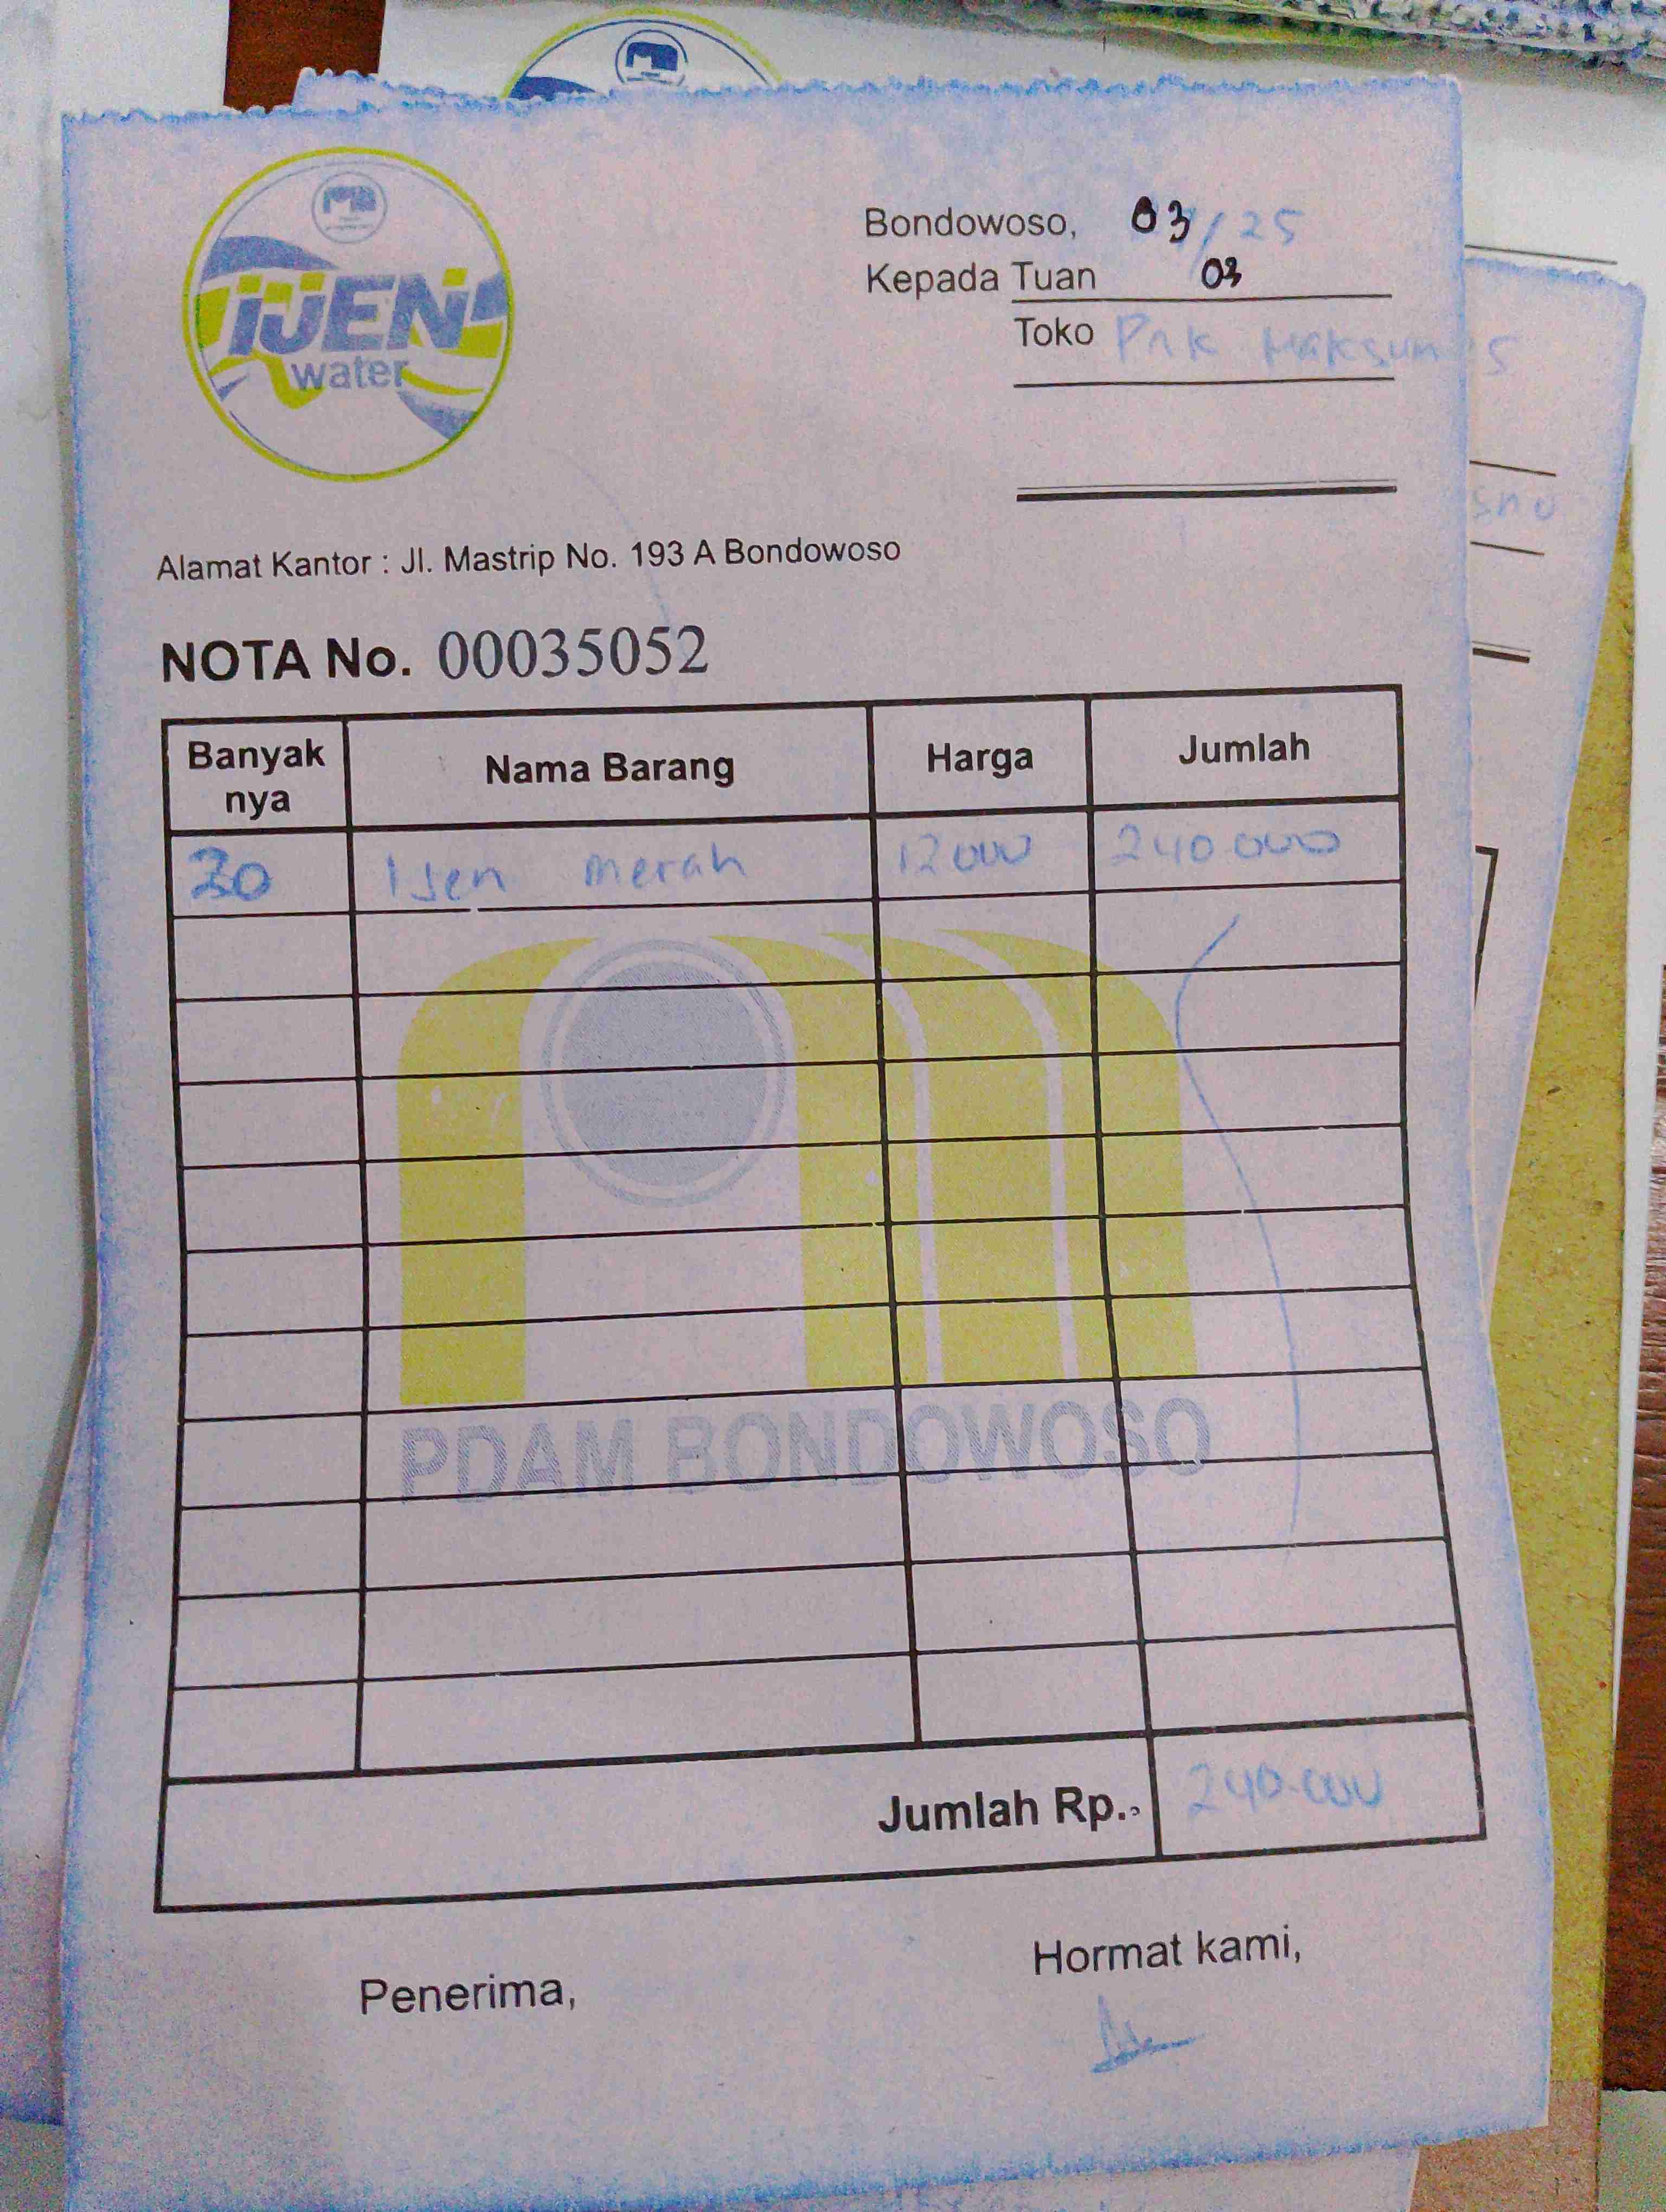 IJEN
water
Bondowoso, 03/25
Kepada Tuan 03
Toko Pak Maksum
Alamat Kantor : Jl. Mastrip No. 193 A Bondowoso
NOTA No. 00035052
Banyak nya Nama Barang Harga Jumlah
20 Ijen merah 12000 240.000
PDAM BONDOWOSO
Jumlah Rp.. 240.000
Penerima, Hormat kami,